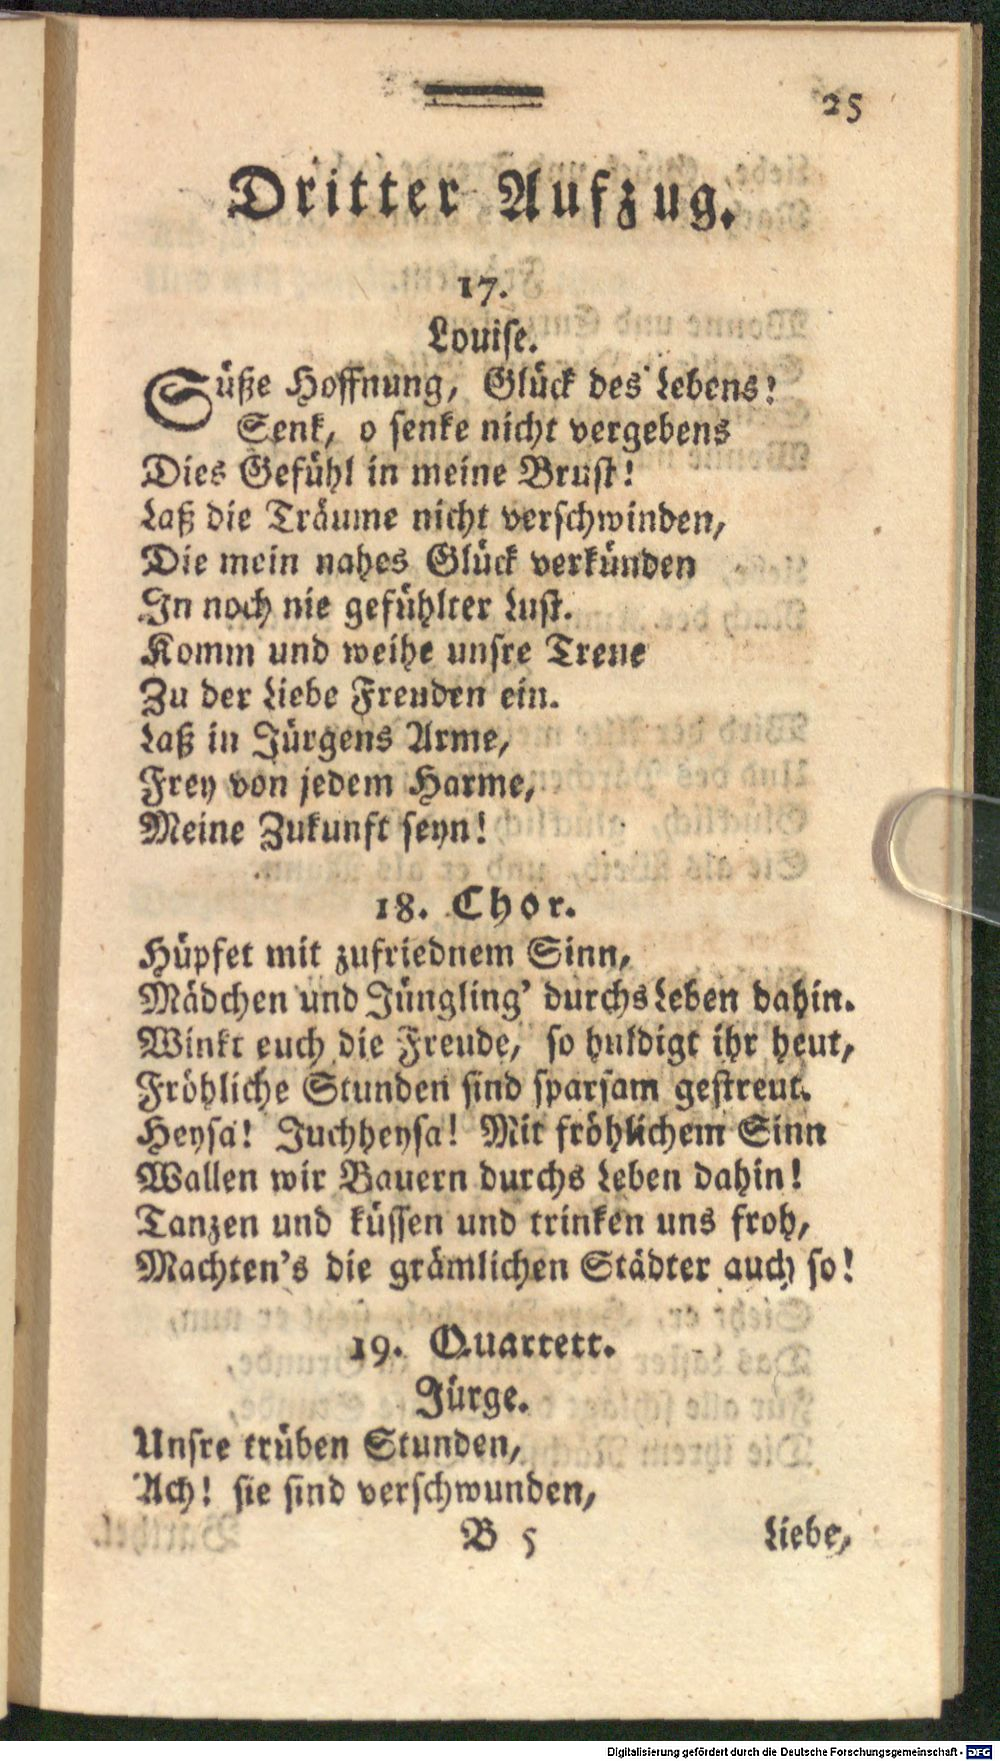 25
Dritter Aufzug.
17.
Louise.
Süße Hoffnung, Glück des Lebens!
Senk, o senke nicht vergebens
Dies Gefühl in meine Brust!
Laß die Träume nicht verschwinden,
Die mein nahes Glück verkünden
In noch nie gefühlter Lust.
Komm und weihe unsre Treue
Zu der Liebe Freuden ein.
Laß in Jürgens Arme,
Frey von jedem Harme,
Meine Zukunft seyn!
18. Chor.
Hüpfet mit zufriednem Sinn,
Mädchen und Jüngling' durchs Leben dahin.
Winkt euch die Freude, so huldigt ihr heut,
Fröhliche Stunden sind sparsam gestreut.
Heysa! Juchheysa! Mit fröhlichem Sinn
Wallen wir Bauern durchs Leben dahin!
Tanzen und küssen und trinken uns froh,
Machten's die grämlichen Städter auch so!
19. Quartett.
Jürge.
Unsre trüben Stunden,
Ach! sie sind verschwunden,
B 5 Liebe,
Digitalisierung gefördert durch die Deutsche Forschungsgemeinschaft - DFG